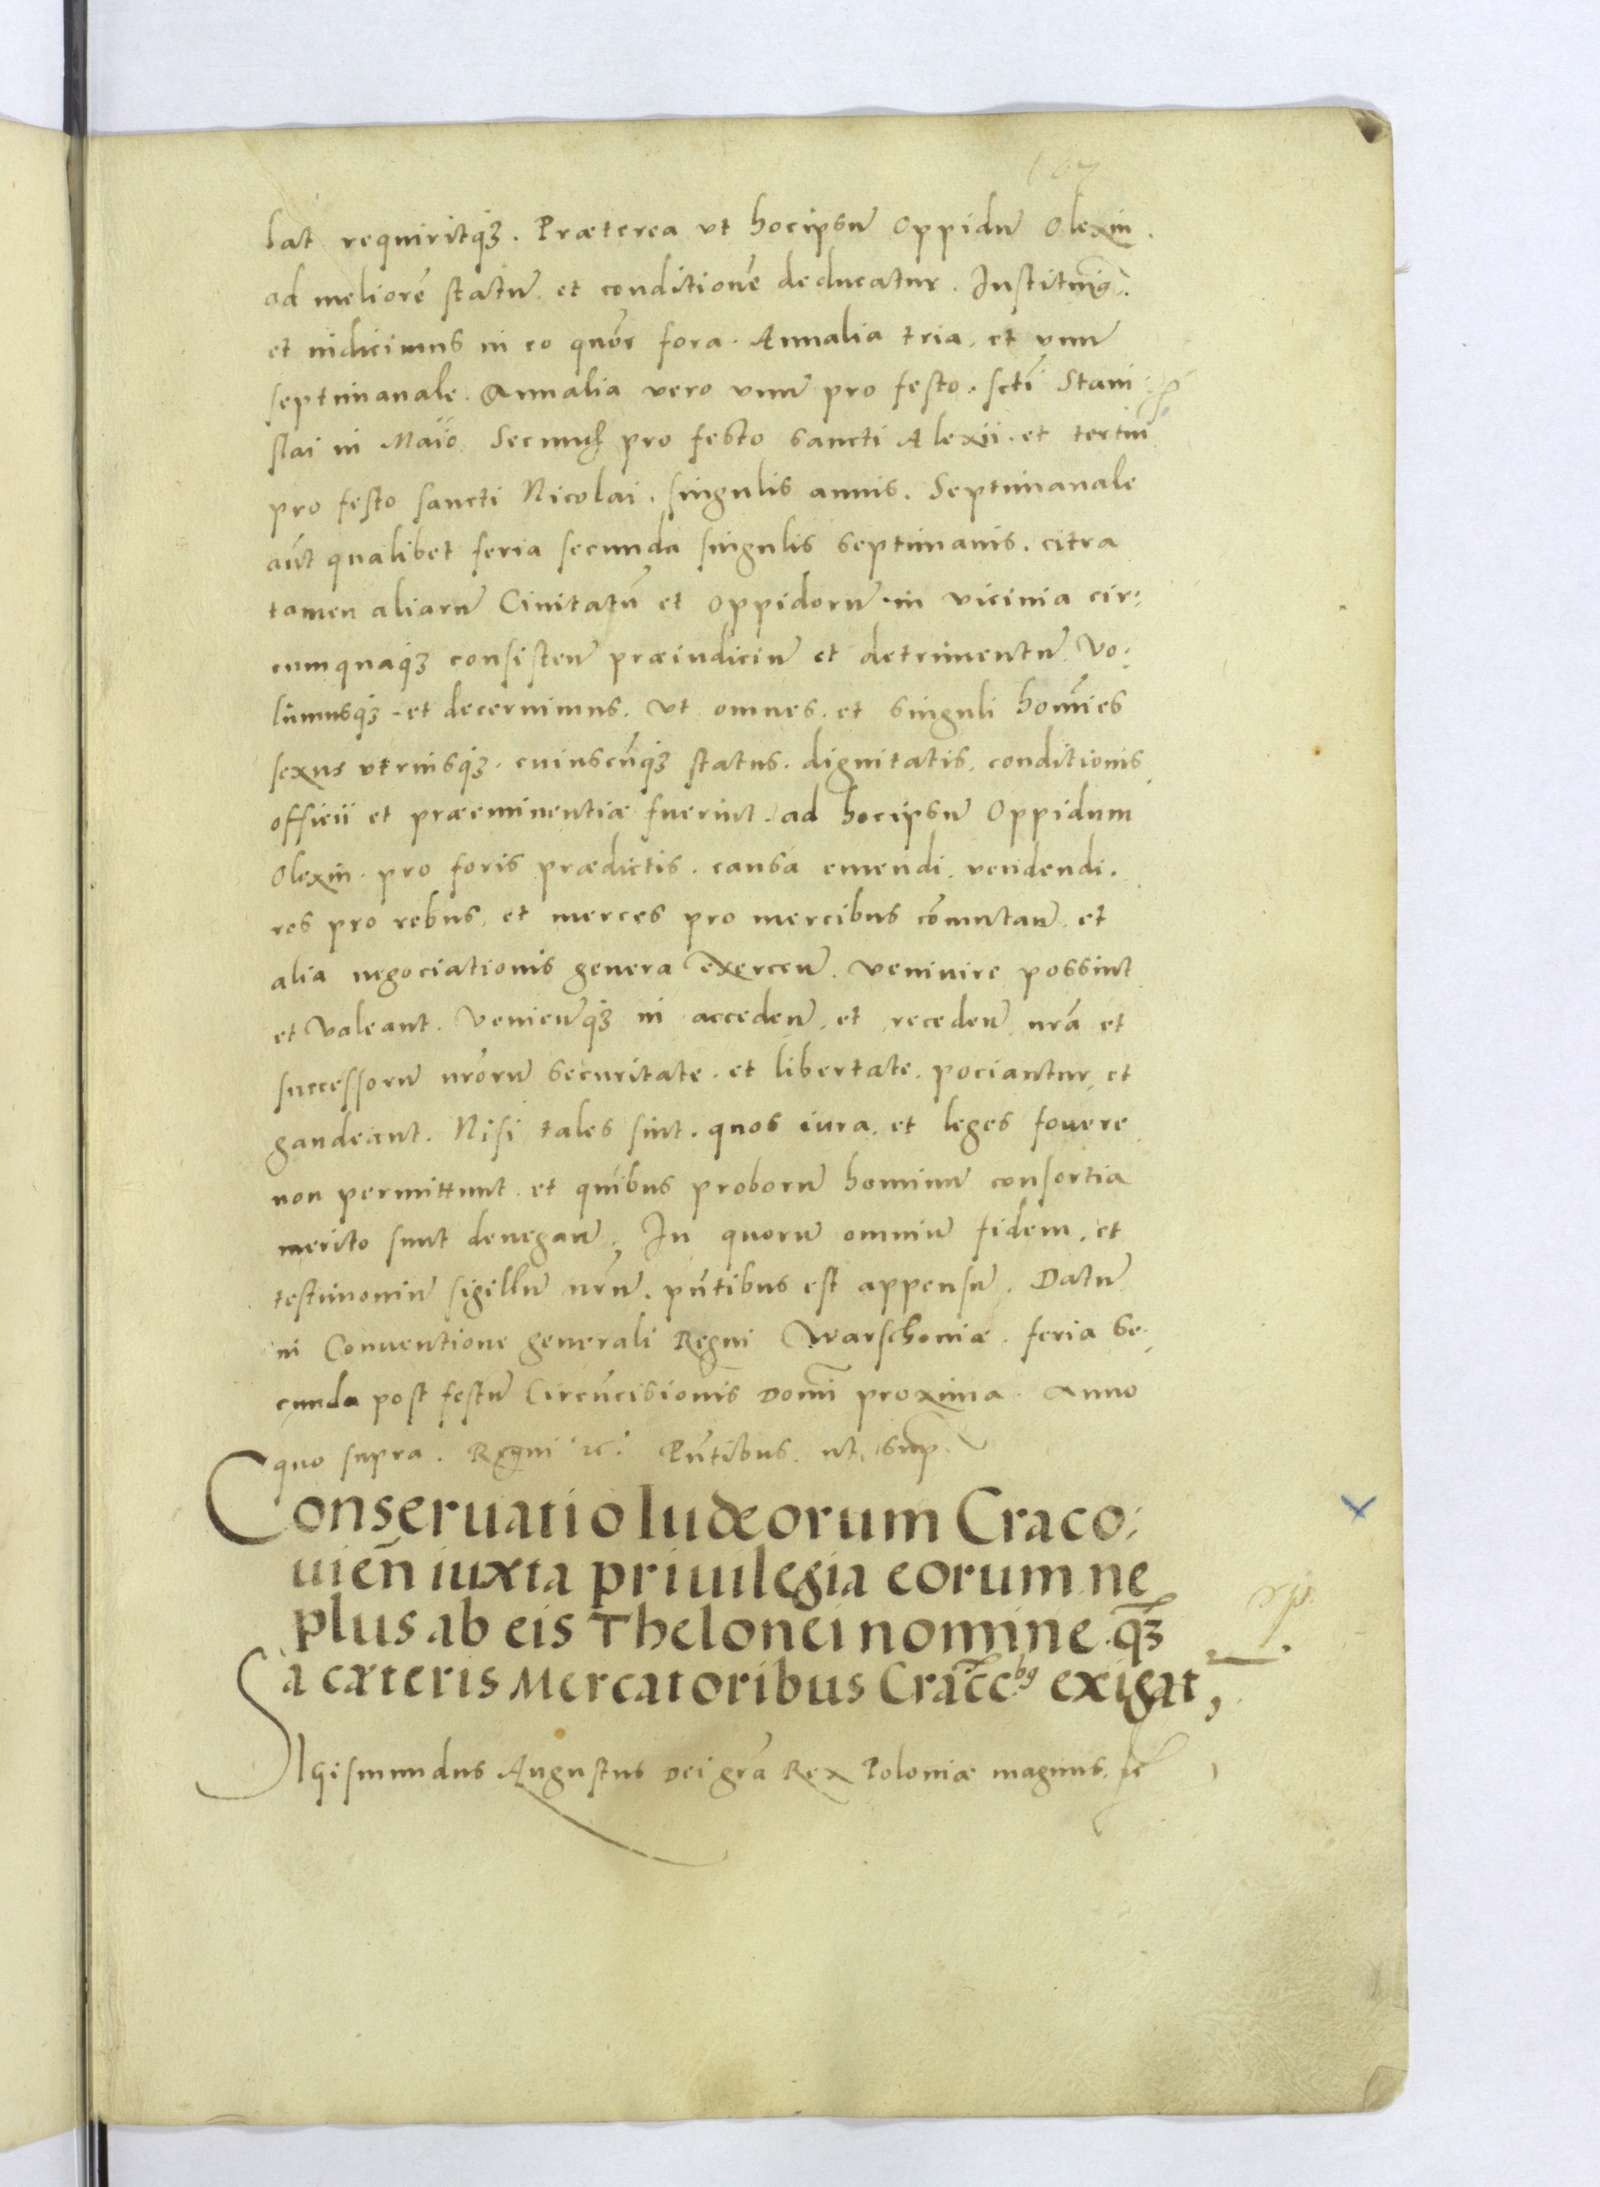 167
lat requiritq3. Præterea vt hocipsũ Oppidũ Olexin.
ad meliorẽ statũ et conditionẽ deducatur. Instituimꝰ.
et indicimus in eo quoꝗ fora. Annalia tria, et vnũ
septimanale. Annalia vero vnũ pro festo. scti Stani:
slai in Maio Secund pro festo sancti Alexii. et tertiũ
pro festo sancti Nicolai. singulis annis. Septimanale
aũt qualibet feria secunda singulis septimanis. citra
tamen aliarũ Ciuitatũ et oppidorũ in vicinia cir:
cumquaq3 consisteñ præiudiciũ et detrimentũ. Vo:
lumusq3 et decernimus. Vt omnes. et singuli homĩes
sexus vtriusq3. cuiuscũq3 status. dignitatis. conditionis
officii et præeminentiæ fuerint. ad hocipsũ Oppidum
Olexin. pro foris prædictis. causa emendi. vendendi.
res pro rebus, et merces pro mercibus cõmutañ. et
alia negociationis genera exerceñ. venire possint
et Valeant. Venieñq3 in accedeñ, et recedeñ nrã et
successorũ nrõrũ securitate. et libertate. pociantur, et
gaudeant. Nisi tales sint. quos iura, et leges fouere
non permittunt. et quibus proborũ hominũ consortia
merito sunt denegañ. In quorũ omniũ fidem. et
testimoniũ sigillũ nrũ. pñtibus est appensũ. Datũ
in Conuentione generali Regni Warschouiæ. feria se:
cunda post festũ Circũcisionis Domĩ proxima. Anno
quo supra. Regni ꝛc. Pñtibus. ut, sup.
Conseruatio Iudæorum Craco:
uieñ iuxta priuilegia eorum ne
plus ab eis Thelonei nomine q3
a cæteris Mercatoribus Cracc.bꝰ exigat,
SIgismundus Augustus Dei grã Rex Poloniæ magnus. ꝛc